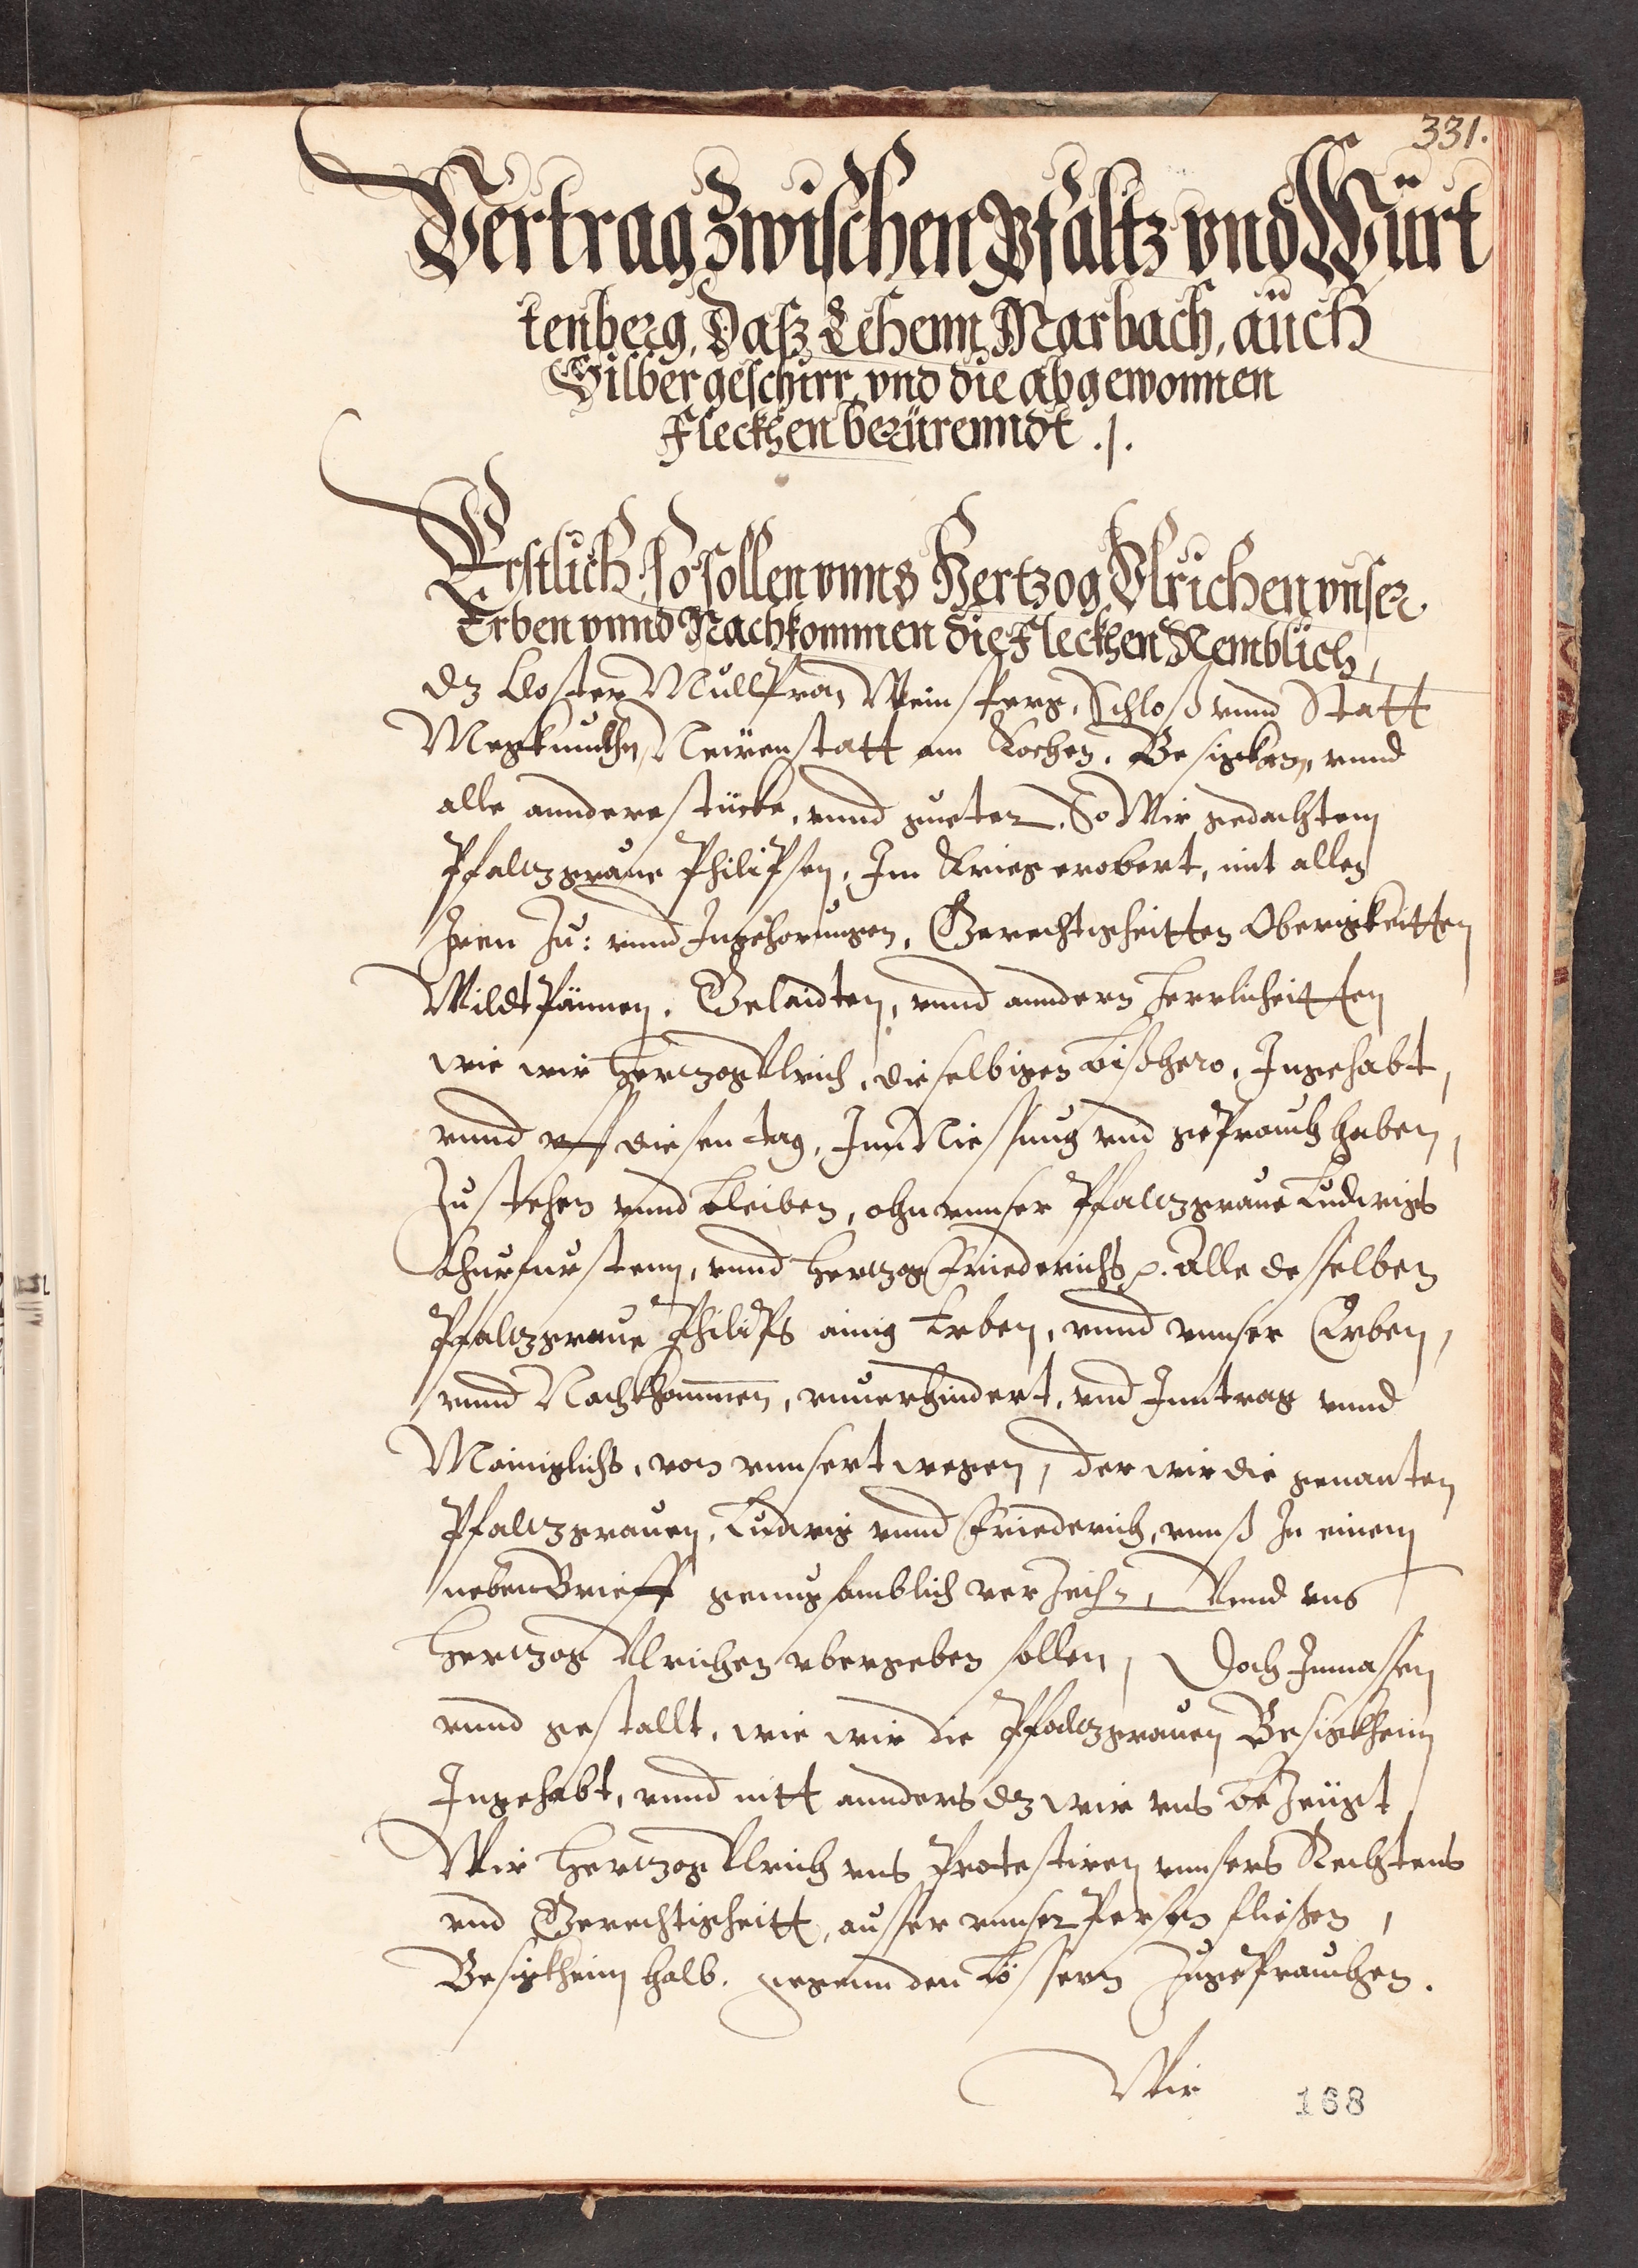 331.
Vertrag Zwischen Pfaltz vnd Würt
tenberg, Dasz Lehenn Marbach, auch
Silbergeschirr, vnd die abgewonnen
Fleckhen berüerenndt ./.
Erstlich, so sollen vnns Hertzog Vlrichen, vnser
Erben vnnd Nachkommen die Fleckhen Nemblich,
dz Closter Mullbron, Weinsperg, Schloß vnnd Statt
Megkmülhn, Neüenstatt am Kochen, Besigken, vnnd
alle anndere stückh, vnnd gueter, So Wir gedachtem
Pfaltzgraue Philipsen, Im Krieg erobert, mit allen
Iren Zu: vnnd Ingehorungen, Gerechtigheitten Oberigkeitten
Wildtpännen, Gelaidten, vnnd anndern Herrlicheitten
wie wir Hertzog Vlrich, dieselbigen bißhero, Ingehabt,
vnnd vff diesen tag, Inn Niessung vnd geprauch haben,
Zustehen vnnd bleiben, ohn vnnser Pfaltzgraue Ludwigs
Churfurstenn, vnnd Hertzog Friederichs, Alle desselben
Pfaltzgraue Philips ainig Erben, vnnd vnnser Erben,
vnnd Nachkhommen, vnuerhindert, vnd Inntrag vnnd
Mainiglichs, von vnnsert wegen, der wir die genanten
Pfaltzgrauen, Ludwig vnnd Friederich, vnnß In einem
neben Brieff genugsamblich verZeihen, Vnnd vns
Hertzog Vlrichen vbergeben sollen, Doch Inmassen
vnnd gestallt, wie wir die Pfaltzgrauen Besigkheim
Ingehabt, vnnd nitt annders dz wir vns beZeügt
Wir Hertzog Vlrich vns Protestiren vnnsers Rechtens
vnd Gerechtigheitt, ausser vnnser Person fliessen,
Besigkheim halb, gegenn den Lössern Zugeprauchen.
Wir
168